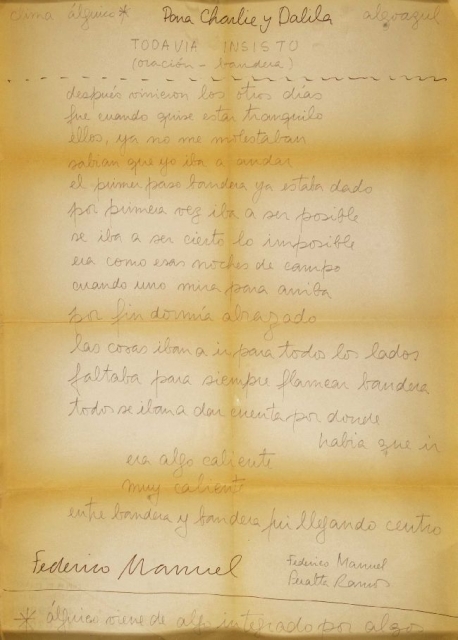 clima álguico* Para Charlie y Dalila algoazul
TODAVIA INSISTO
(oración - bandera)
después vinieron los otros días
fue cuando quise estar tranquilo
ellos, ya no me molestaban
sabían que yo iba a andar
el primer paso bandera ya estaba dado
por primera vez iba a ser posible
se iba a ser cierto lo imposible
era como esas noches de campo
cuando uno mira para arriba
por fin dormía abrazado
las cosas iban a ir para todo los lados
faltaba para siempre flamear bandera
todos se iban a dar cuenta por donde
había que ir
era algo caliente
muy caliente
entre bandera y bandera fui llegando centro
Federico Manuel
Federico Manuel
Peralta Ramos
* álguico viene de algo integrado por algos